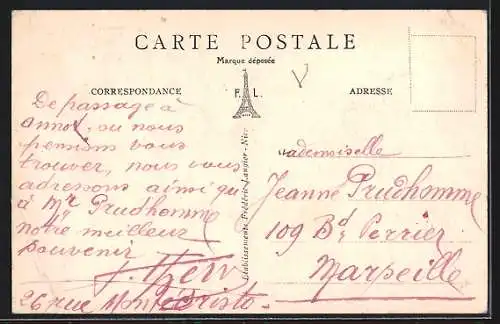 CARTE POSTALE
Marque déposée
CORRESPONDANCE
F. L.
ADRESSE
De passage à
annot, ou nous
pensions vous
trouver, nous vous
adressons ainsi qu'
à Mr Prudhomme
notre meilleur
souvenir
26 rue Montecristo
Etablissements Frédéric Laugier - Nice
Mademoiselle
Jeanne Prudhomme
109 Bd Perrier
Marseille